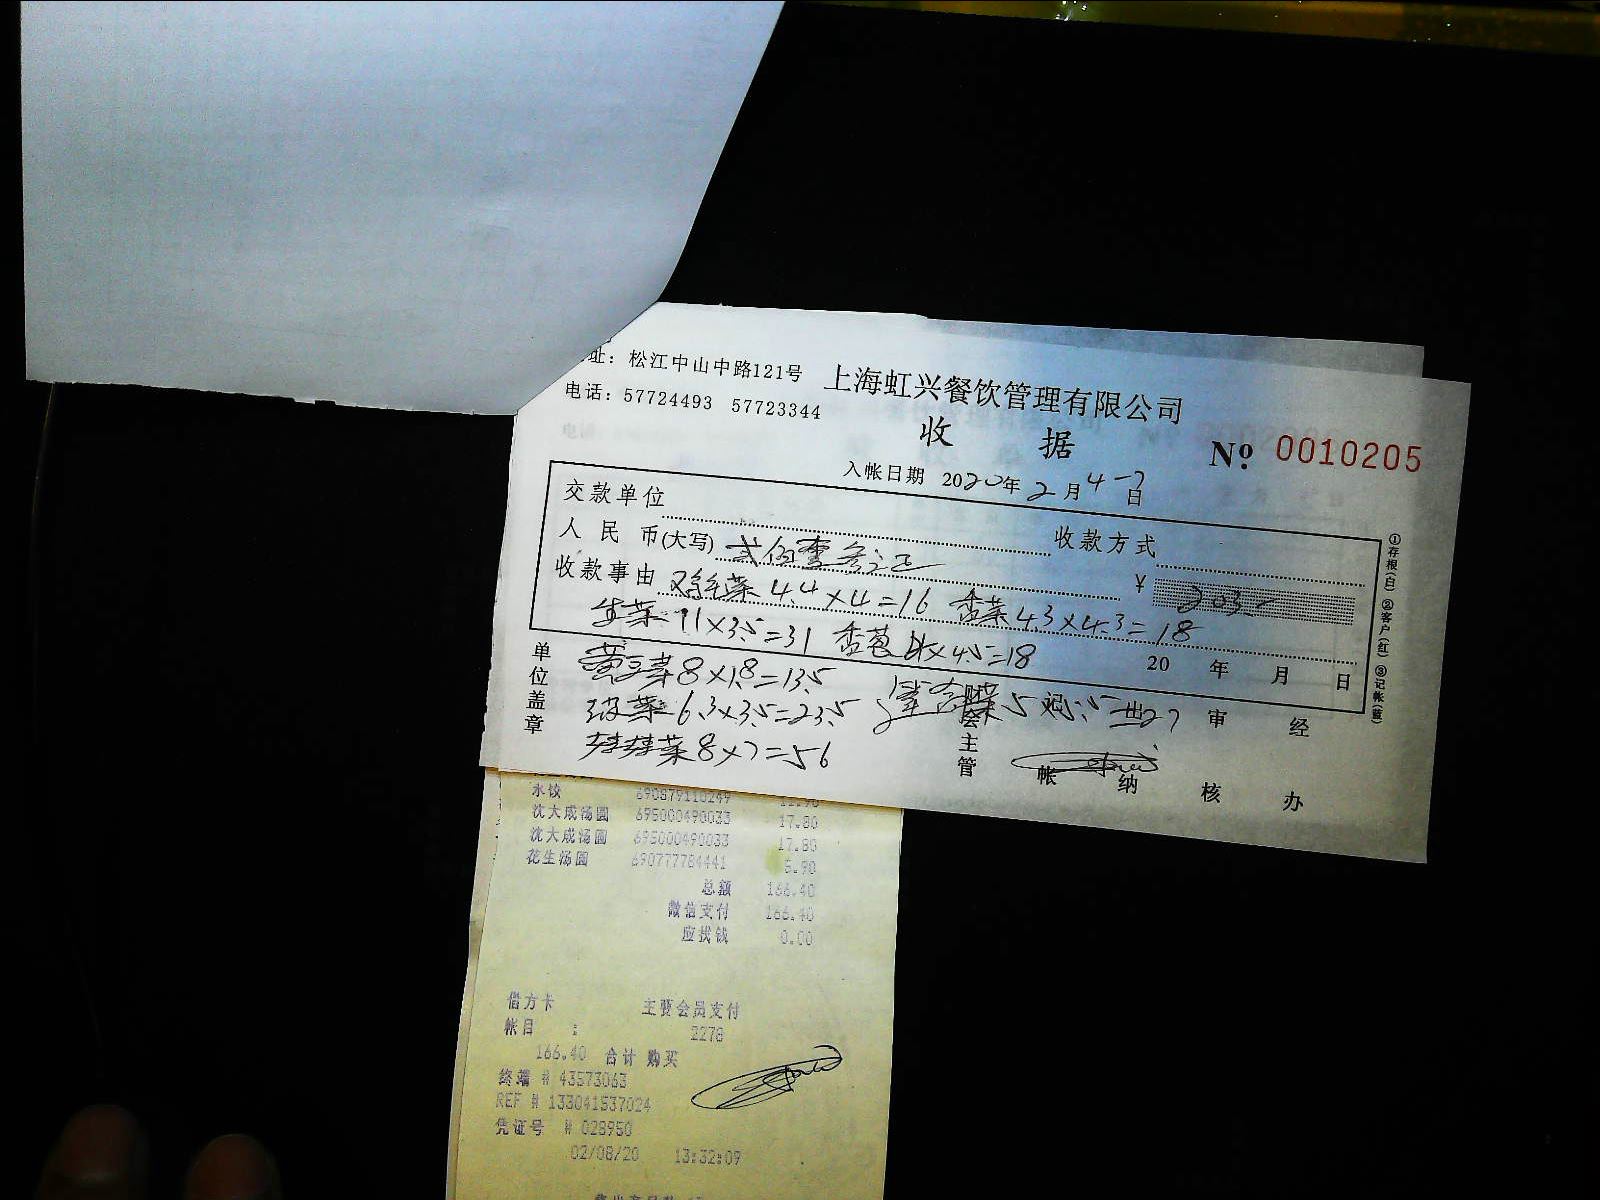 址：松江中山中路121号
电话：57724493 57723344
上海虹兴餐饮管理有限公司
收 据
No. 0010205
入帐日期 2020年2月4-7日
交款单位 收款方式
人民币(大写) 贰佰零叁元正 ¥ 203-
收款事由 鸡毛菜 4.4×4=16 香菜 4.3×4.3=18
生菜 11×3.5=31 香葱 4×4.5=18
20 年 月 日
黄豆芽 8×1.8=13.5
菠菜 6.3×3.5=23.5
8×7=56
单位盖章
会主管
帐
纳
审核
经办
①存根(白) ②客户(红) ③记帐(蓝)
水饺 690879110249
沈大成汤圆 695000490033 17.80
沈大成汤圆 695000490033 17.80
花生汤圆 690777784441 6.90
总额 166.40
微信支付 166.40
应找钱 0.00
借方卡 主要会员支付
帐目 : 2278
166.40 合计 购买
终端 # 43573063
REF # 133041537024
凭证号 # 028950
02/08/20 13:32:09